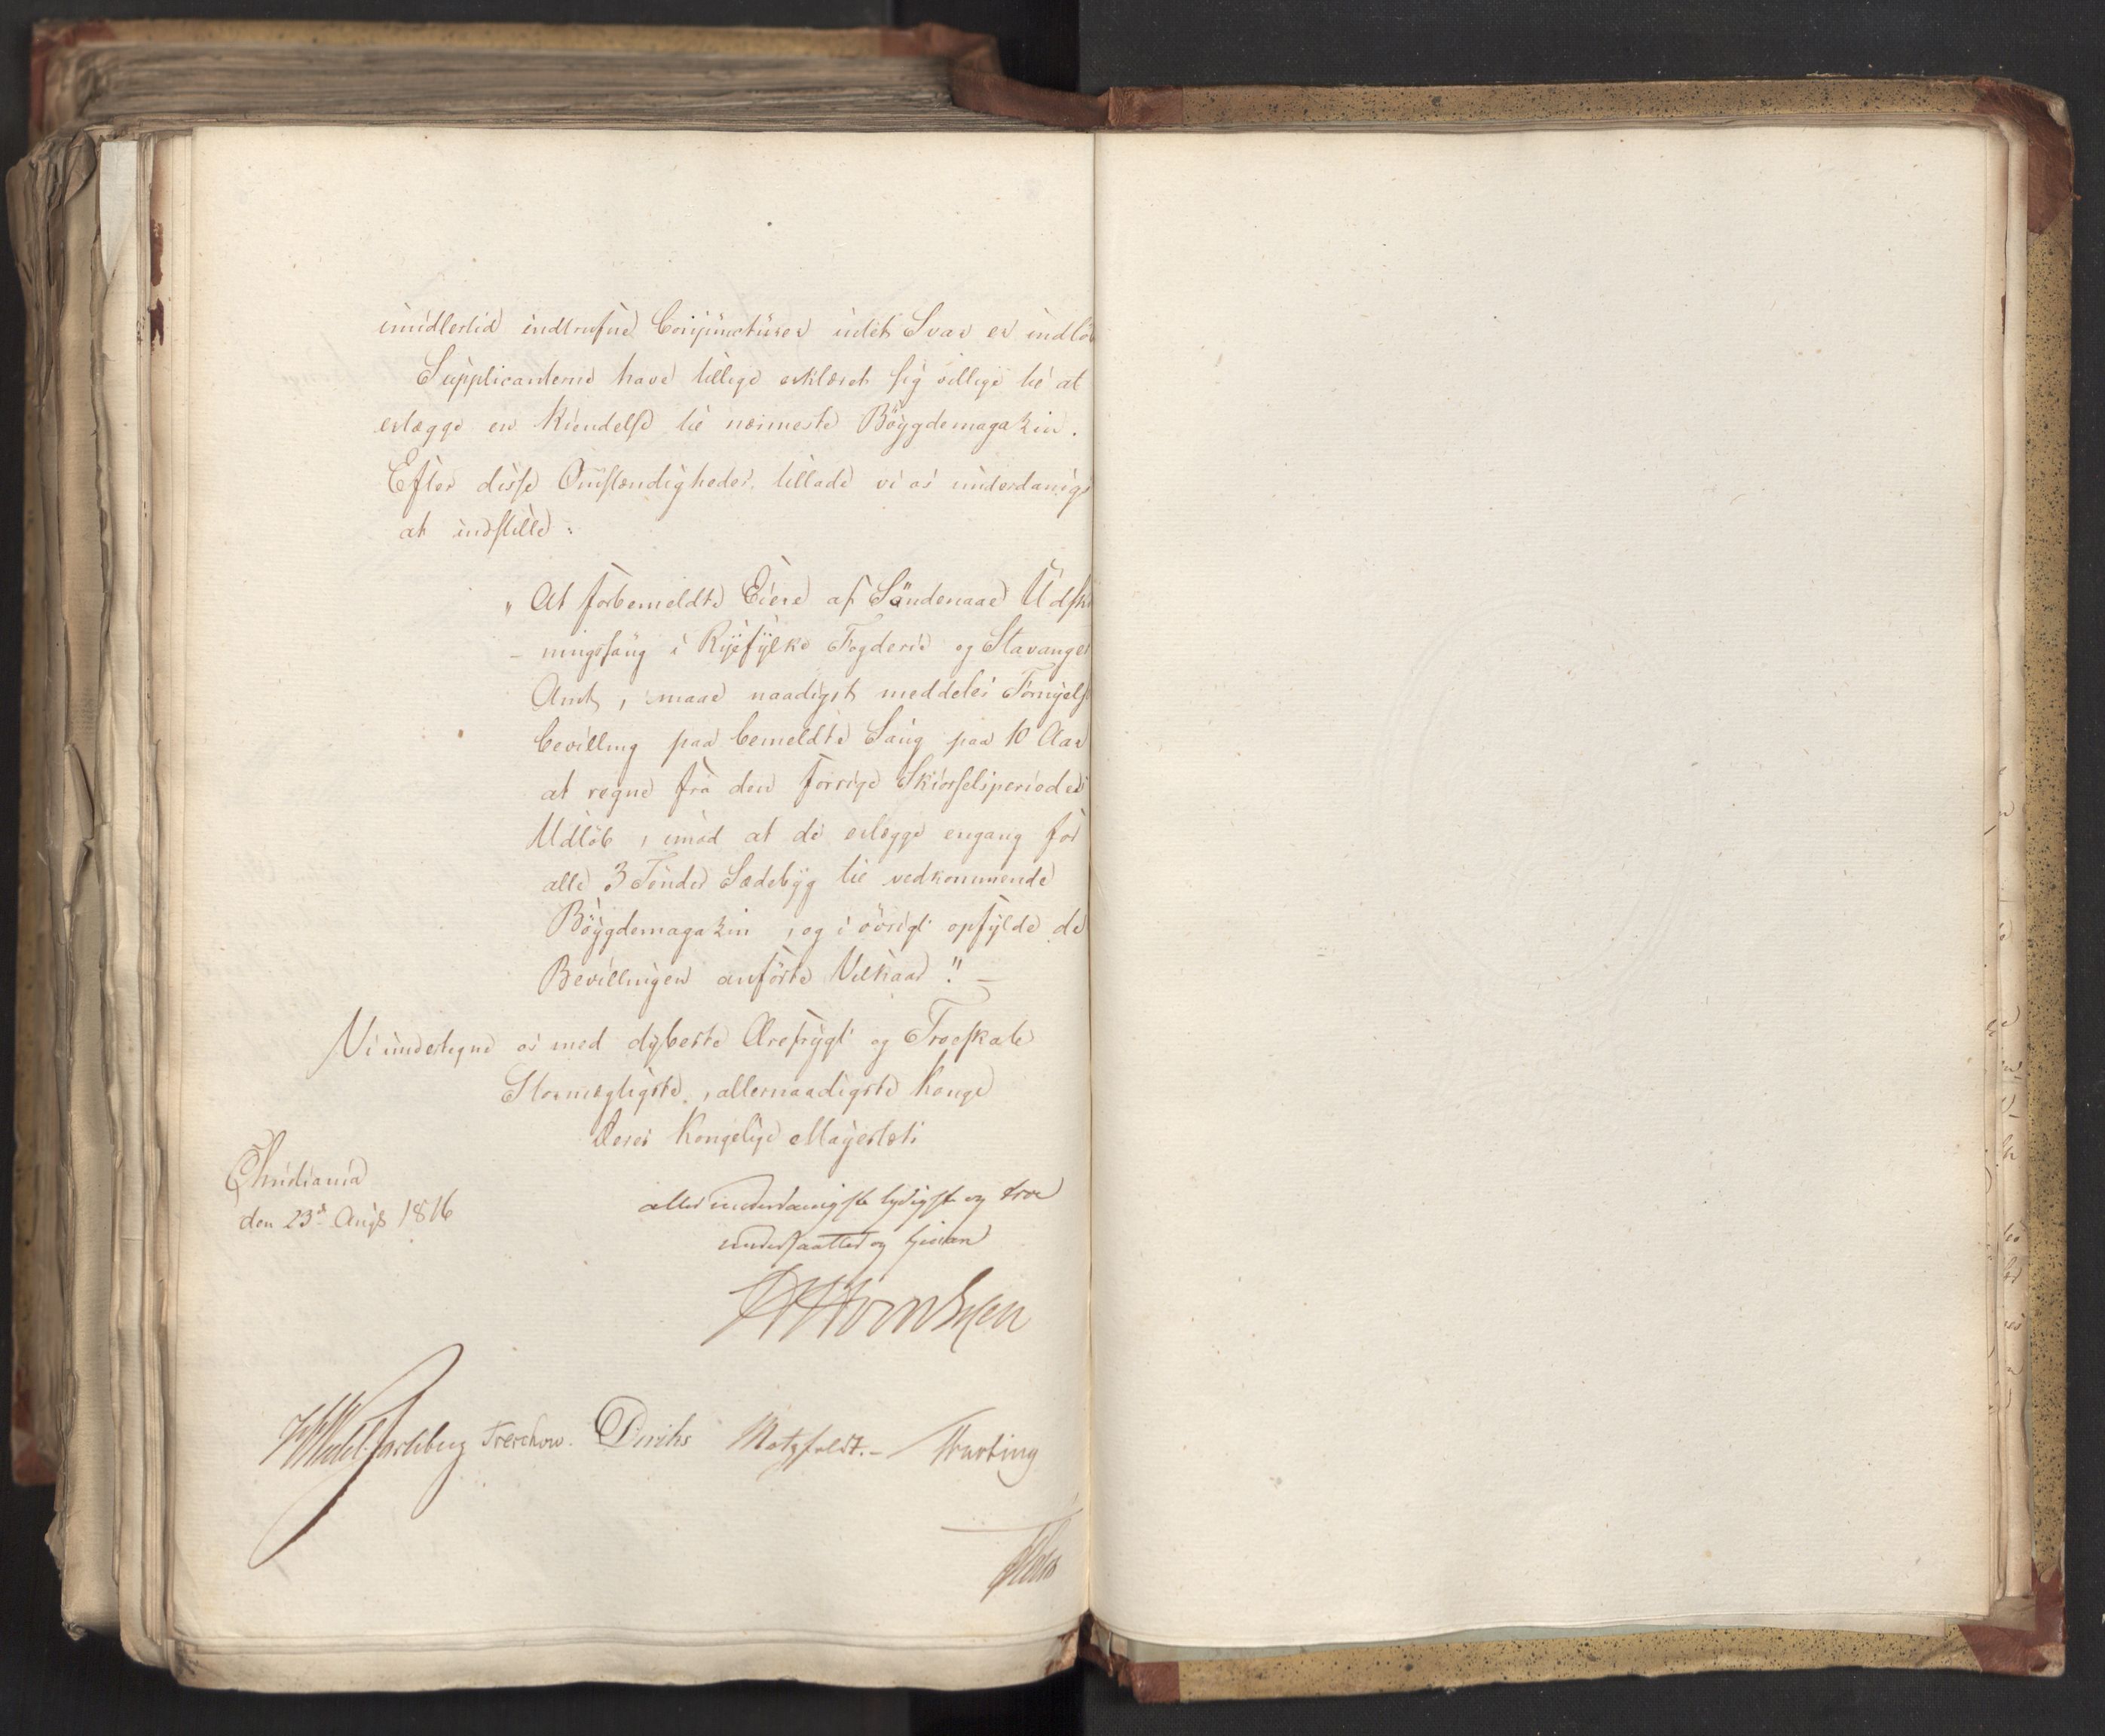 imidlertid indtrufne Conjuncturer intet Svar er indløb
Supplicanterne have tillige erklæret sig villige til at
erlægge en Kiendelse til nærmeste Böygdemagazin.
Efter disse Omstændigheder tillade vi os underdanigs
at indstille:
„At forbemeldte Eiere af Söndenaae Udski
- ningssaug i Ryefylke Fogderie og Stavanger
Amt, maae naadigst meddeles Fornyels
bevilling paa bemeldte Saug paa 10 Aar
at regne fra den forrige Skiørselsperiodes
Udløb, imod at de erlægge engang for
alle 3 Tønder Sædebyg til vedkommende
Böygdemagazin, og i övrigt opfylde de
Bevillingen anförte Vilkaar". -
Vi undertegne os med dybeste Ærefrygt og Troeskab
Stormægtigste, allernaadigste Konge
Deres Kongelige Mayestæts
Christiania
den 23d Augs 1816
allerunderdanigste lydigste og troe
undersaatter og tienere
Hornsyen
HWedel Jarlsberg Treschow. Diriks Motzfeldt.- Krafting